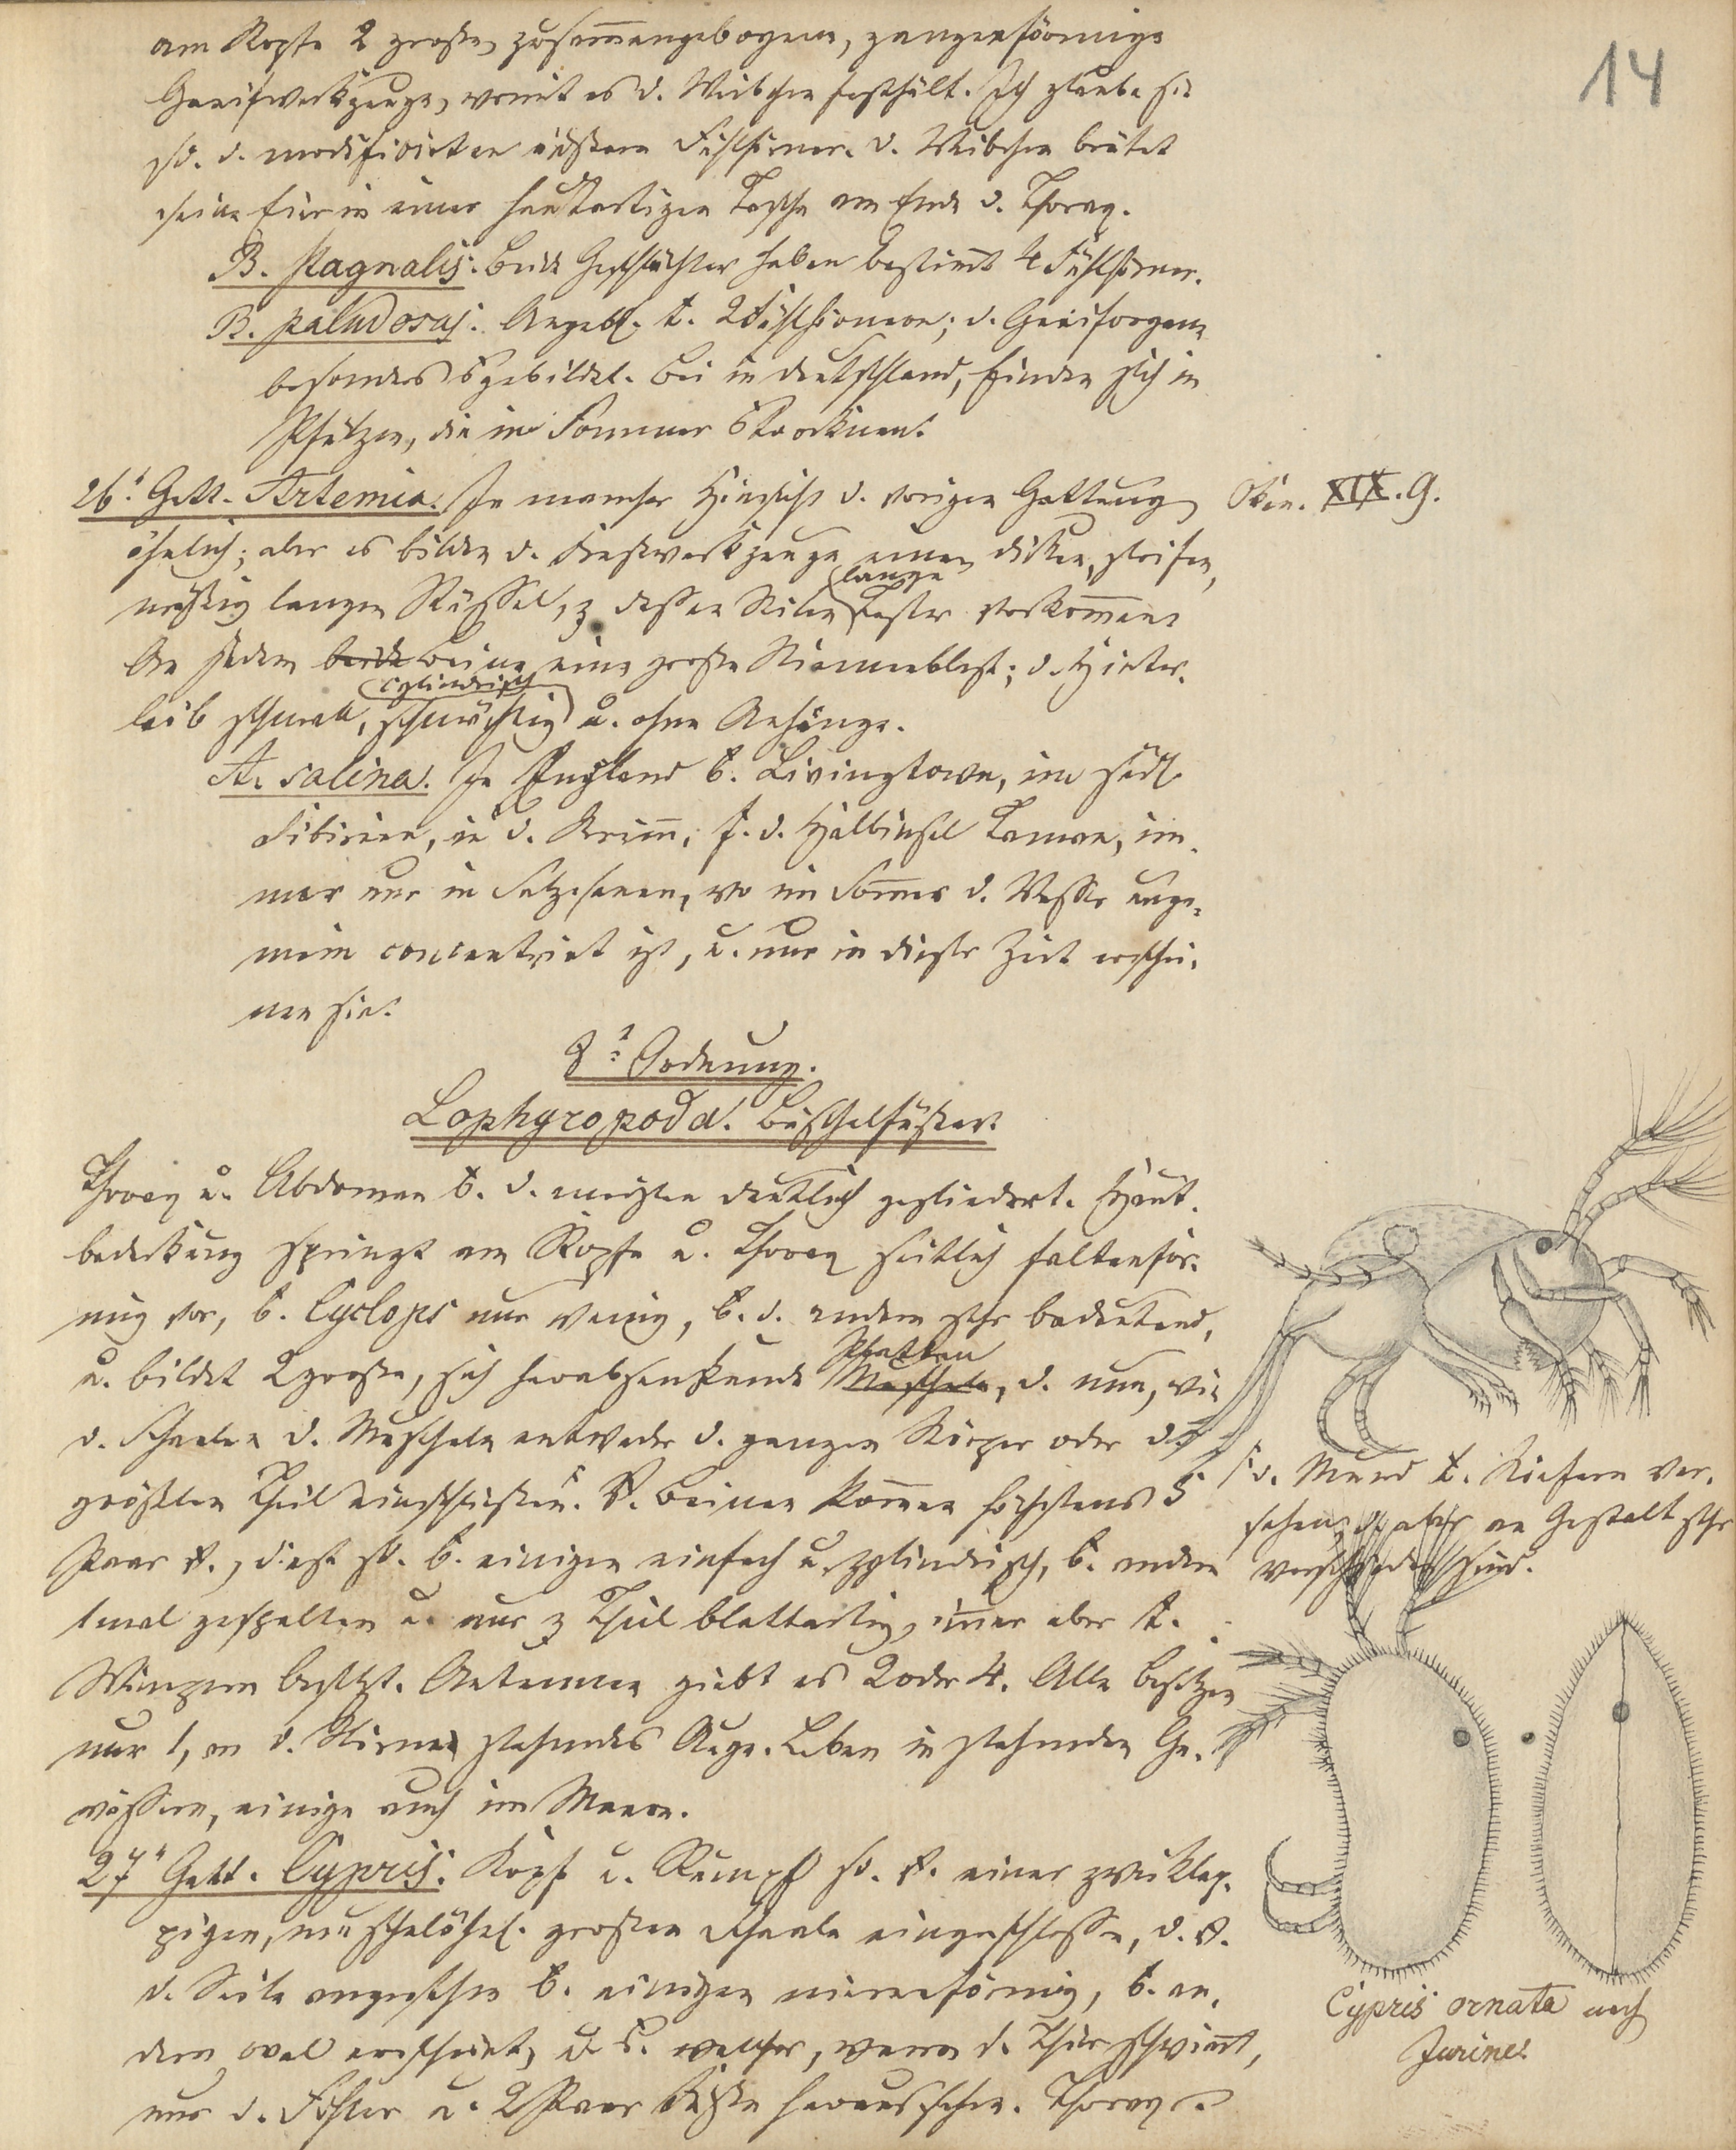 14
am Kopfe 2 große, zusam̅engebogene, zangenförmige
Greifwerkzeuge, womit es d. Weibchen festhält. Ich glaube sie
sd. d. modificirten äußern Fühlhörner. D. Weibchen brütet
seine Eier in einer hautartigen Tasche am Ende d. Thorax.
B. stagnalis. Beide Geschlechter haben bestim̅t 4 Fühlhörner.
B. paludosus. Angebl. 2 Fühlhörnern; d. Greiforgane
besonders gebildet. Bei in Deutschland, finden sich in
Pfützen, die im Sommer trocknen.
26. Gatt. Artemia. In mancher Hinsicht d. vorigen Gattung
Oken. XIX. 9.
ähnlich; aber es bilden d. Freßwerkzeuge einen dicken, steifen,
mäßig langen Rüssel, z dessen Seiten lange Taster vorkom̅en.
An jedem beide Beine eine große Kiemenblase; d. Hinter-
leib schmal, cylindrisch schmächtig u. ohne Anhänge.
A. salina. In England b. Livingtown, im südl.
Sibirien, in d. Krim̅, d. Halbinsel Taman, im-
mer nur in Salzseen, wo im Som̅er d. Wasser unge-
mein concentrirt ist, u. nur in dieser Zeit erschei-
nen sie.
2. Ordnung.
Lophyropoda. Büschelfüßer.
Thorax u. Abdomen b. d. meisten deutlich gegliedert. Haut-
bedeckung springt am Kopfe u. Thorax seitlich faltenför-
mig vor, b. Cyclops nur wenig, b. d. andern sehr bedeutend,
u. bildet 2 große, sich herabsenkende Muscheln Platten, d. nun, wie
d. Schaalen d. Muscheln entweder d. ganzen Körper oder d.
größten Theil einschließen. Beinen kom̅en höchstens 5
d. Mund Kiefern ver-
sehen, aber an Gestalt sehr
verschieden sind.
Paar v., diese sd. b. einigen einfach u. zylindrisch, b. andern
1mal gespalten u. nur z Theil blattartig, im̅er aber
Wimpern besetzt. Antennen giebt es 2 oder 4. Alle besitzen
nur 1, an d. Stirne stehendes Auge. Leben in stehenden Ge-
wässern, einige auch im Meere.
27. Gatt. Cypris. Kopf u. Rumpf sd. v. einer zweiklap-
pigen, muschelähnl. großen Schaale eingeschlossen, d. v.
d. Seite angesehen b. einigen nierenförmig, b. an-
dern oval erscheint, u. welcher, wenn d. Thier schwim̅t,
nur d. Fühler u. 2 Paar Füße heraussehen. Thorax
Cypris ornata nach
Jurine.